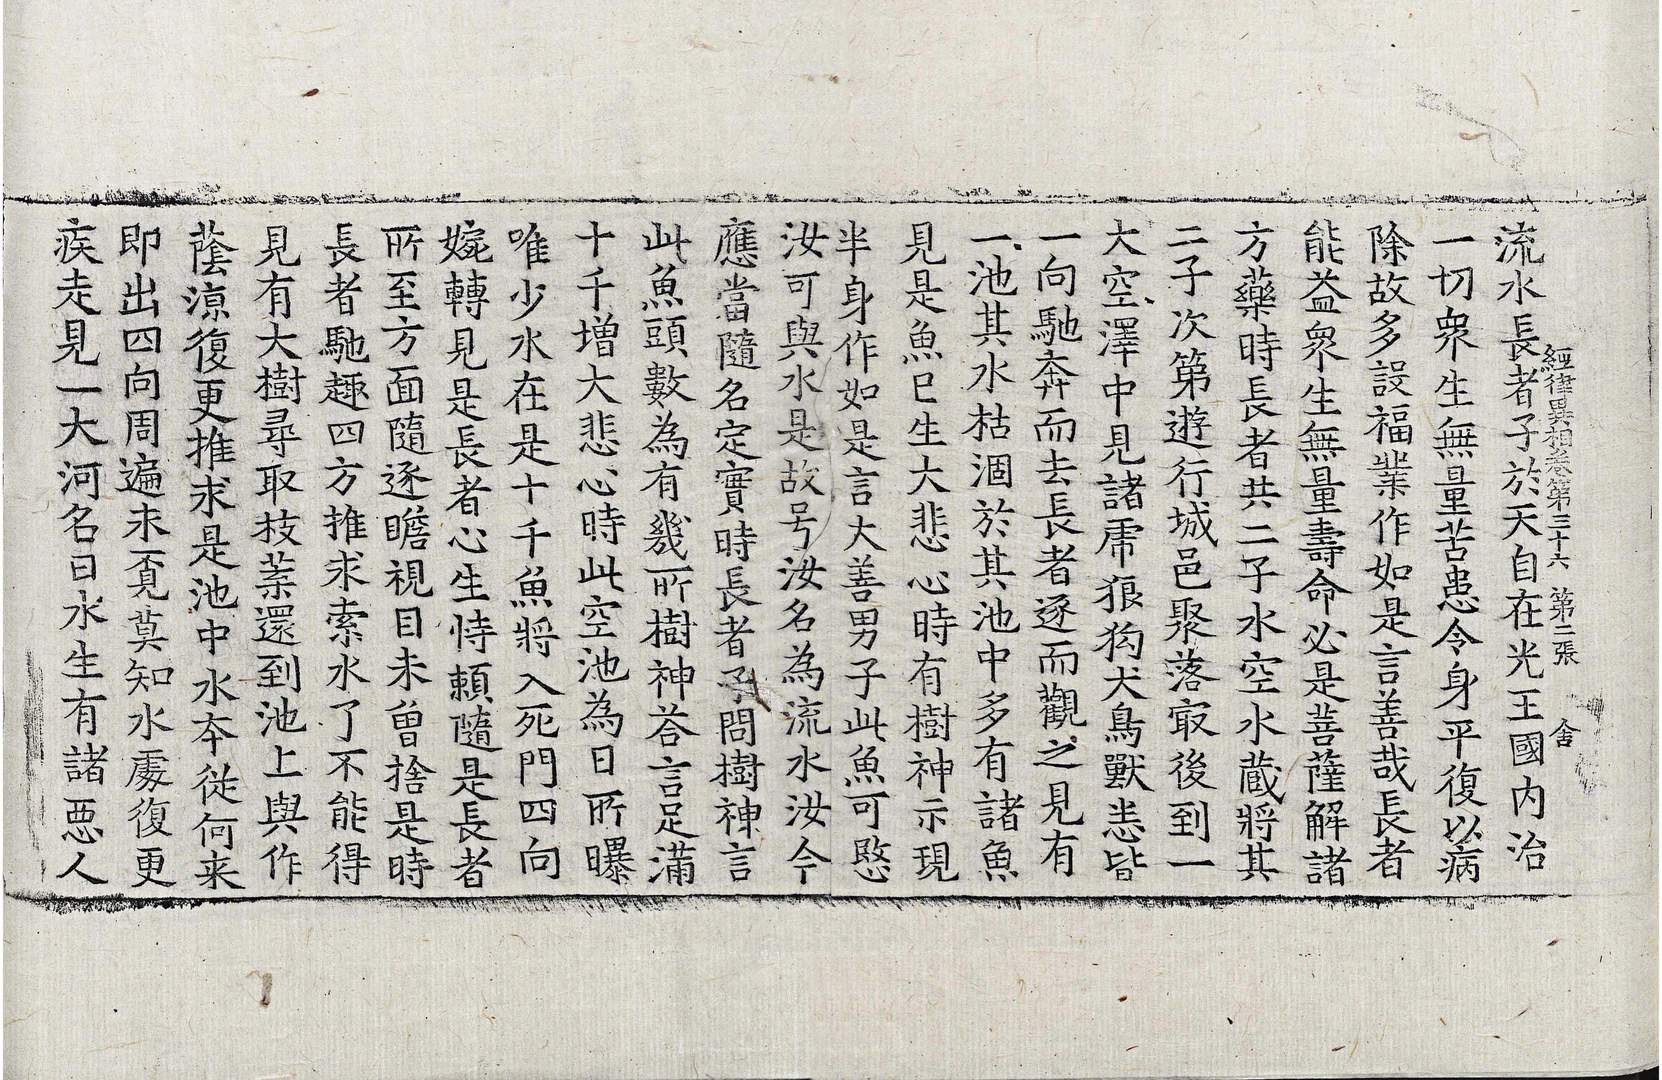 經律異相卷第三十六 第二張 舍
流水長者子於天自在光王國內治
一切衆生無量苦患令身平復以病
除故多設福業作如是言善哉長者
能益衆生無量壽命必是菩薩解諸
方藥時長者共二子水空水藏將其
二子次第遊行城邑聚落寂後到一
大空澤中見諸虎狼狗犬鳥獸恚皆
一向馳奔而去長者逐而觀之見有
一池其水枯涸於其池中多有諸魚
見是魚已生大悲心時有樹神示現
半身作如是言大善男子此魚可愍
汝可與水是故号汝名為流水汝今
應當隨名定實時長者子問樹神言
此魚頭數為有幾所樹神荅言足滿
十千增大悲心時此空池為日所曝
唯少水在是十千魚將入死門四向
婉轉見是長者心生恃賴隨是長者
所至方面隨逐瞻視目未曽捨是時
長者馳趣四方推求索水了不能得
見有大樹尋取枝葉還到池上與作
蔭涼復更推求是池中水夲從何来
即出四向周遍求覔莫知水處復更
疾走見一大河名曰水生有諸惡人